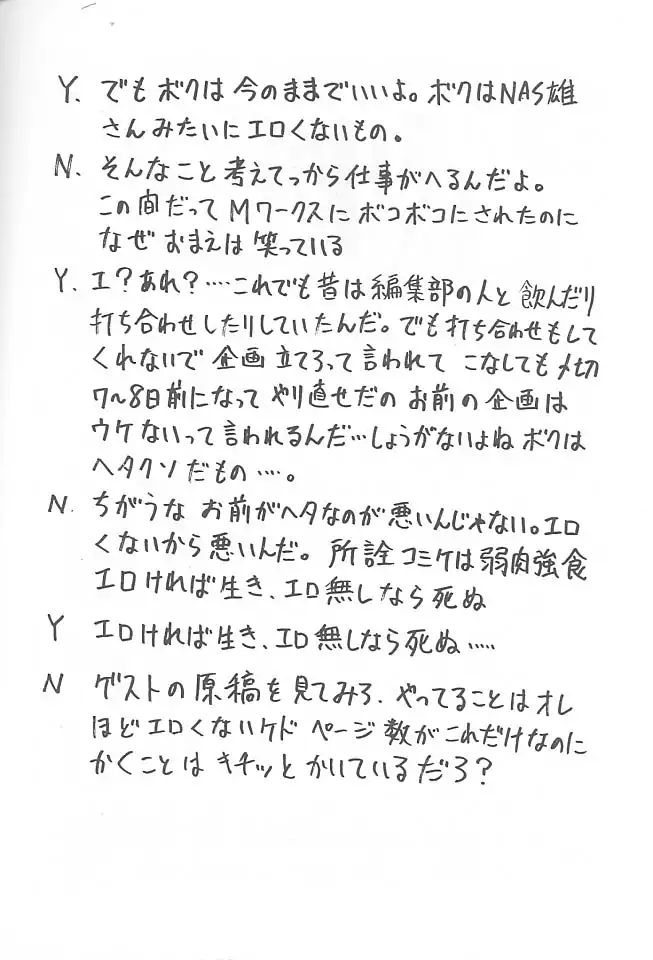 Y. でも ボクは 今のままでいいよ。ボクはNAS雄
さんみたいにエロくないもの。
N. そんなこと考えてっから仕事がへるんだよ。
この間だって Mワークスに ボコボコにされたのに
なぜ おまえは 笑っている
Y. エ?あれ?‥‥これでも昔は編集部の人と 飲んだり
打ち合わせしたりしていたんだ。でも打ち合わせもして
くれないで 企画立てろって言われて こなしても〆切
7〜8日前になって やり直せだの お前の企画は
ウケないって言われるんだ…しょうがないよね ボクは
ヘタクソだもの‥‥。
N. ちがうな お前がヘタなのが悪いんじゃない。エロ
くないから悪いんだ。所詮コミケは弱肉強食
エロければ生き、エロ無しなら死ぬ
Y エロければ生き、エロ無しなら死ぬ‥‥‥
N ゲストの原稿を見てみろ、やってることはオレ
ほどエロくないケド ページ数がこれだけなのに
かくことは キチッと かいているだろ?